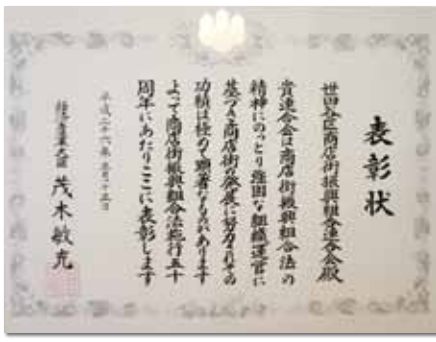 表彰状
世田谷区商店街振興組合連合会殿
貴連合会は商店街振興組合法の
精神にのっとり強固な組織運営に
基づき商店街の発展に努力されその
功績は極めて顕著なものがあります
よって商店街振興組合法施行五十
周年にあたりここに表彰します
平成二十六年
経済産業大臣 茂木敏充